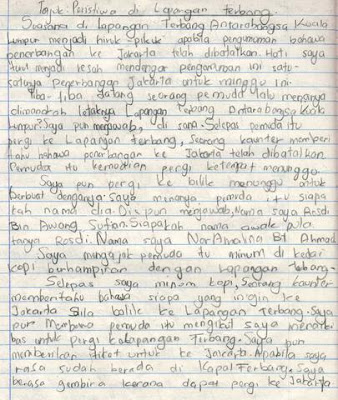 Tajuk Peristiwa di Lapangan Terbang
Suasana di Lapangan Terbang Antarabangsa Kuala
Lumpur menjadi hiruk pikuk apabila pengumuman bahawa
penerbangan ke Jakarta telah dibatalkan. Hati saya
turut menjadi resah mendengar pengumuman ini satu-
satunya penerbangan Jakarta untuk minggu ini.
Tiba-tiba datang seorang pemuda lalu menanya
dimanakah letaknya Lapangan Terbang Antarabangsa Kuala
Lumpur. Saya pun menjawab, di sana. Selepas pemuda itu
pergi ke Lapangan Terbang, Seorang kaunter memberi
tahu bahawa penerbangan ke Jakarta telah dibatalkan
Pemuda itu kemudian pergi ketempat menunggu.
Saya pun pergi ke bilik menunggu untuk
berbual denganya. Saya menanya pemuda itu siapa
kah nama dia. Dia pun menjawab, Nama saya Rosdi
Bin Awang Sufian. Siapakah nama awak pula
tanya Rosdi. Nama saya Nor Ahmad
Saya mengajak pemuda itu minum di kedai
kopi berhampiran dengan Lapangan Terbang.
Selepas saya minum kopi, Seorang kaunter
memberitahu bahawa siapa yang ingin ke
Jakarta Sila balik ke Lapangan Terbang. Saya
pun Membawa pemuda itu mengikut saya menaiki
bas untuk pergi kelapangan Terbang. Saya pun
memberikan tiket untuk ke Jakarta. Apabila saya
rasa sudah berada di Kapal Terbang. Saya
berasa gembira kerana dapat pergi ke Jakarta